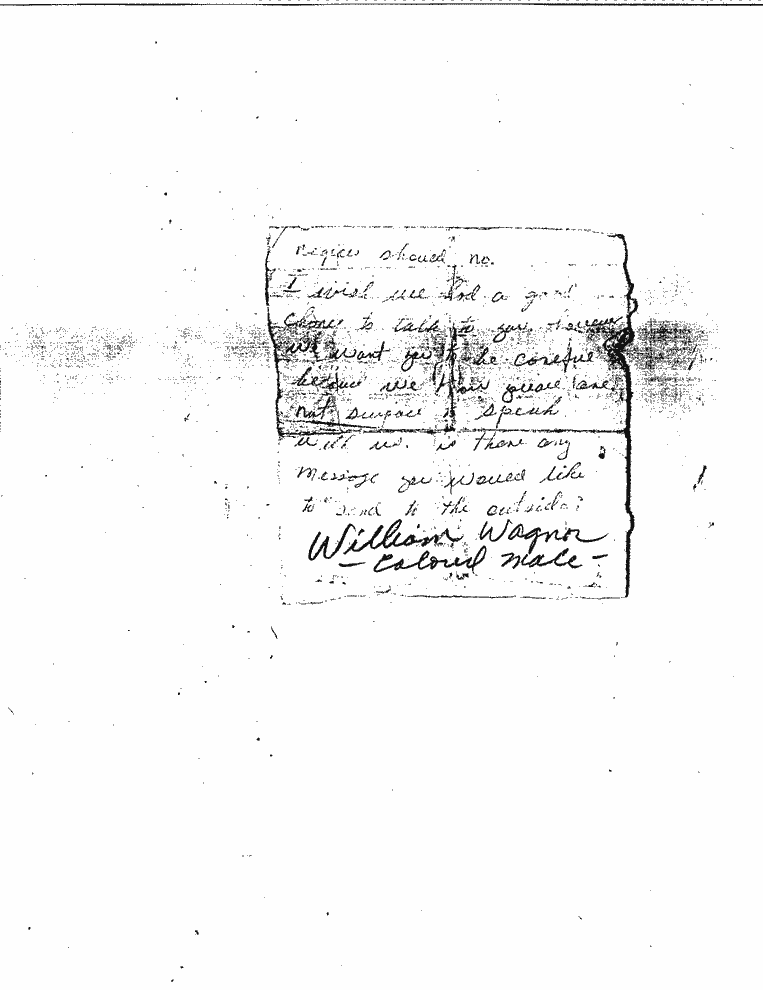 should no.
I wish we had a good
chance to talk to you
we want you to be careful
because we
not to speak
with us. is there any
message you would like
to send to the outside?
William Wagnor
- Colored Male -